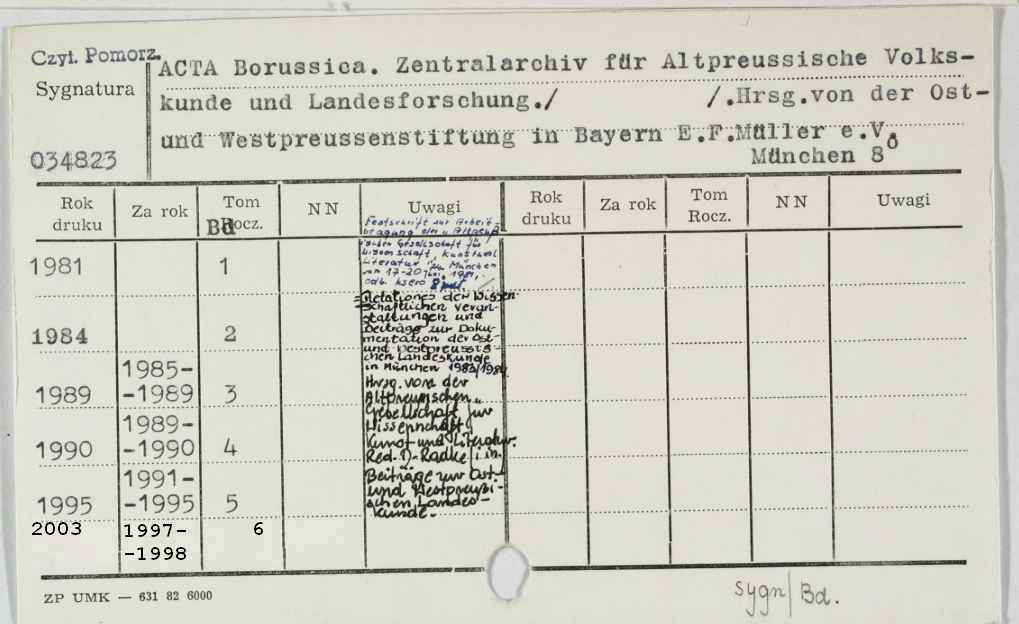 Czyt. Pomorz.
Sygnatura
034823
ACTA Borussica. Zentralarchiv für Altpreussische Volks-
kunde und Landesforschung./ /.Hrsg.von der Ost-
und Westpreussenstiftung in Bayern E.F.Müller e.V.
München 8⁰
Rok druku Za rok Tom Rocz. Bd NN Uwagi Rok druku Za rok Tom Rocz. NN Uwagi
1981 1
Festschrift zur Arbeits-
tagung der Altpreuß
schen Gesellschaft für
Wissenschaft, Kunst und
Literatur in München
17-20 Juni, 1981,
odb. ksero
1984 2
=Relationes der Wissen-
schaftlichen Veran-
staltungen und
Beiträge zur Doku-
mentation der Ost-
und Westpreussis-
chen Landeskunde
in München 1983/1984
1989 1985-
-1989 3
Hrsg. von der
Altpreusśchen
Gesellschaft für
Wissenschaft
Kunst und Literatur.
Red. D. Radke i in.
1990 1989-
-1990 4
1995 1991-
-1995 5
Beiträge zur Ost-
und Westpreußi-
schen Landes-
kunde.
2003 1997-
-1998 6
ZP UMK — 631 82 6000
sygn/Bd.